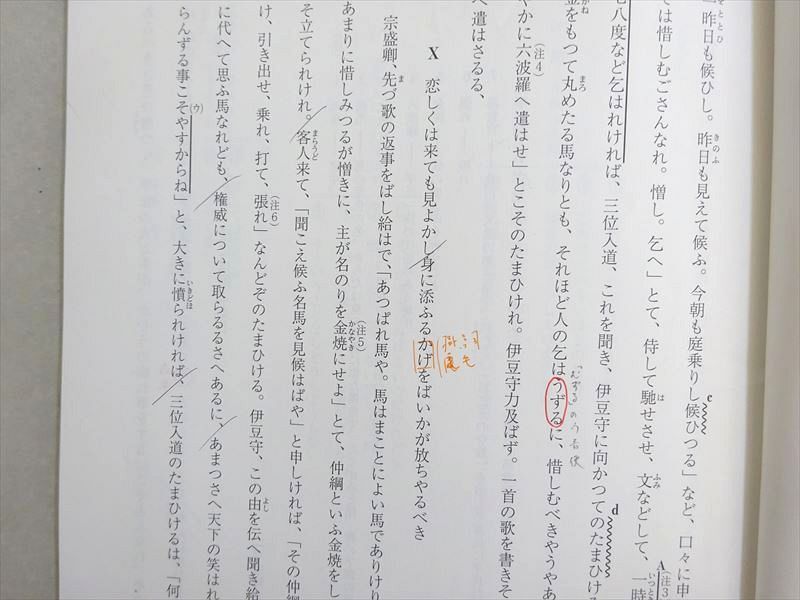 一昨日も候ひし。昨日も見えて候ふ。今朝も庭乗りし候ひつる」など、口々に申
ては惜しむごさんなれ。憎し。乞へ」とて、侍して馳せさせ、文などして、一時
七八度など乞はれければ、三位入道、これを聞き、伊豆守に向かつてのたまひけ
金をもつて丸めたる馬なりとも、それほど人の乞はうずるに、惜しむべきやうやあ
「むずる」のう音便
やかに六波羅へ遣はせ」とこそのたまひけれ。伊豆守力及ばず。一首の歌を書きそ
へ遣はさるる、
X 恋しくは来ても見よかし身に添ふるかげをばいかが放ちやるべき
掛詞
宗盛卿、先づ歌の返事をばし給はで、「あつぱれ馬や。馬はまことによい馬でありけり
あまりに惜しみつるが憎きに、主が名のりを金焼にせよ」とて、仲綱といふ金焼をし
そ立てられけれ。客人来て、「聞こえ候ふ名馬を見候はばや」と申しければ、「その仲綱
け、引き出せ、乗れ、打て、張れ」なんどぞのたまひける。伊豆守、この由を伝へ聞き給
に代へて思ふ馬なれども、権威について取らるるさへあるに、あまつさへ天下の笑はれ
らんずる事こそやすからね」と、大きに憤られければ、三位入道のたまひけるは、「何